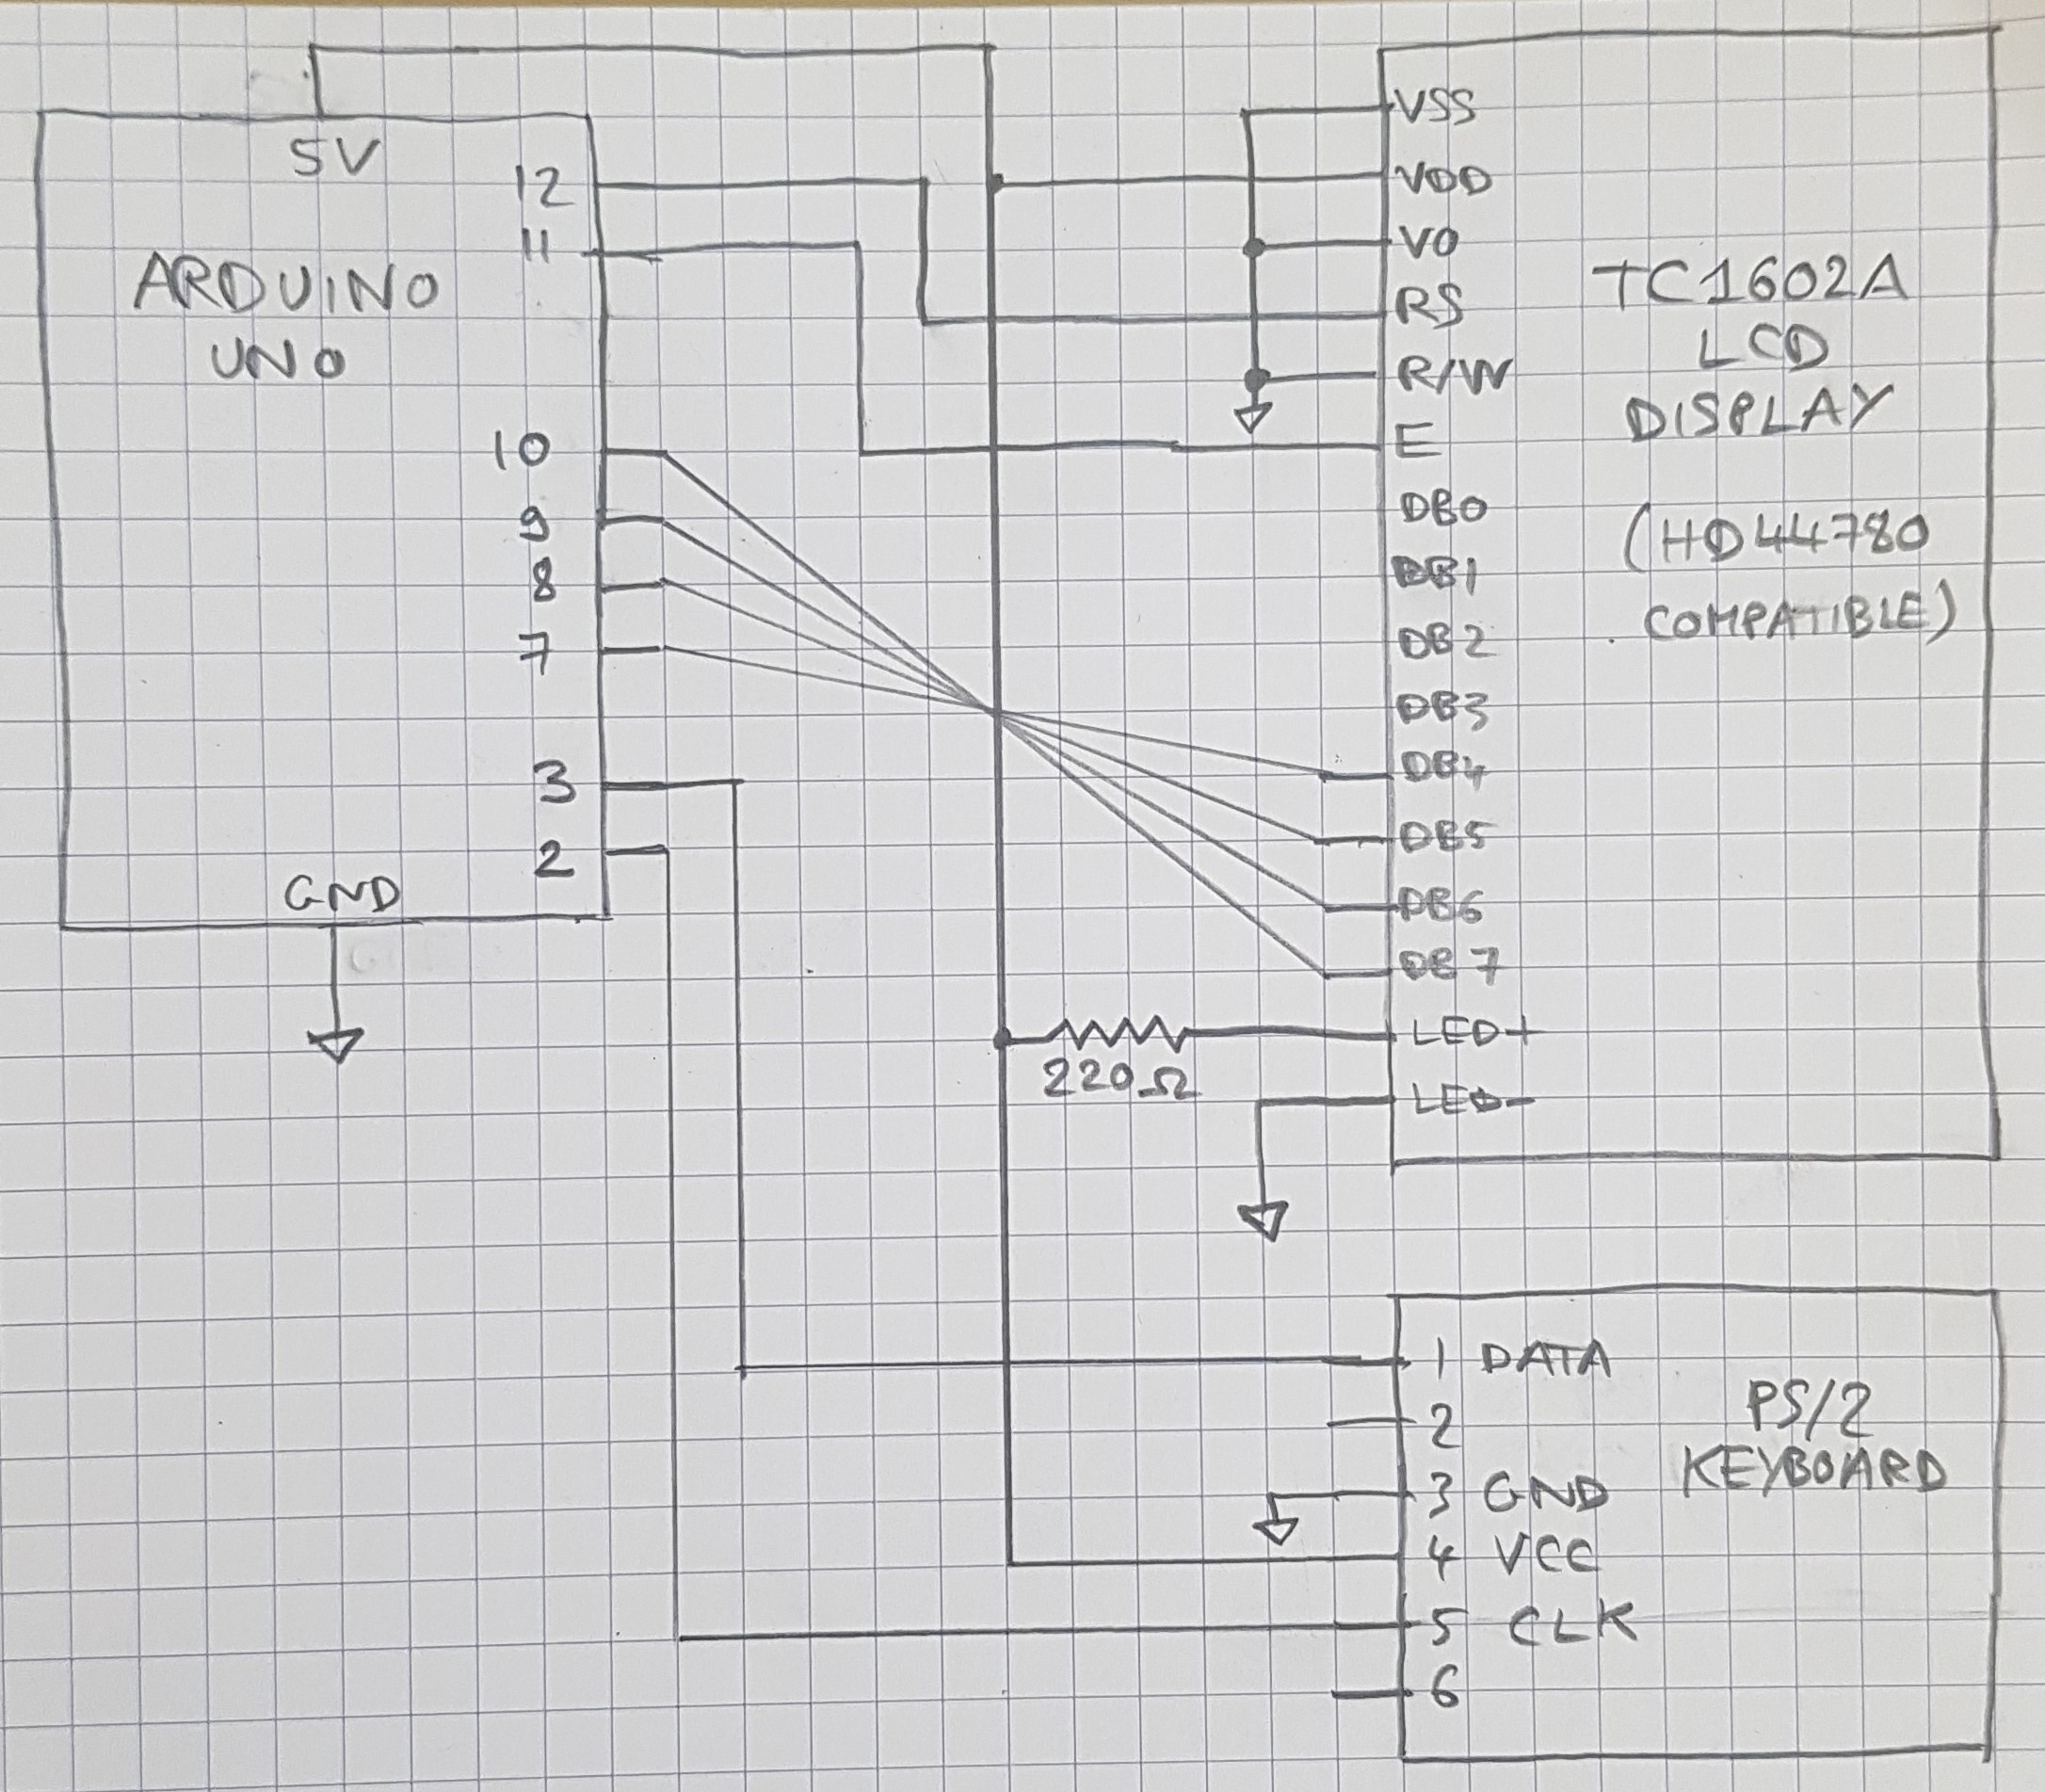 5V
12
11
ARDUINO
UNO
10
9
8
7
3
2
GND
VSS
VDD
VO
RS
R/W
E
DB0
DB1
DB2
DB3
DB4
DB5
DB6
DB7
LED+
LED-
TC1602A
LCD
DISPLAY
(HD44780
COMPATIBLE)
220Ω
1 DATA
2
3 GND
4 VCC
5 CLK
6
PS/2
KEYBOARD